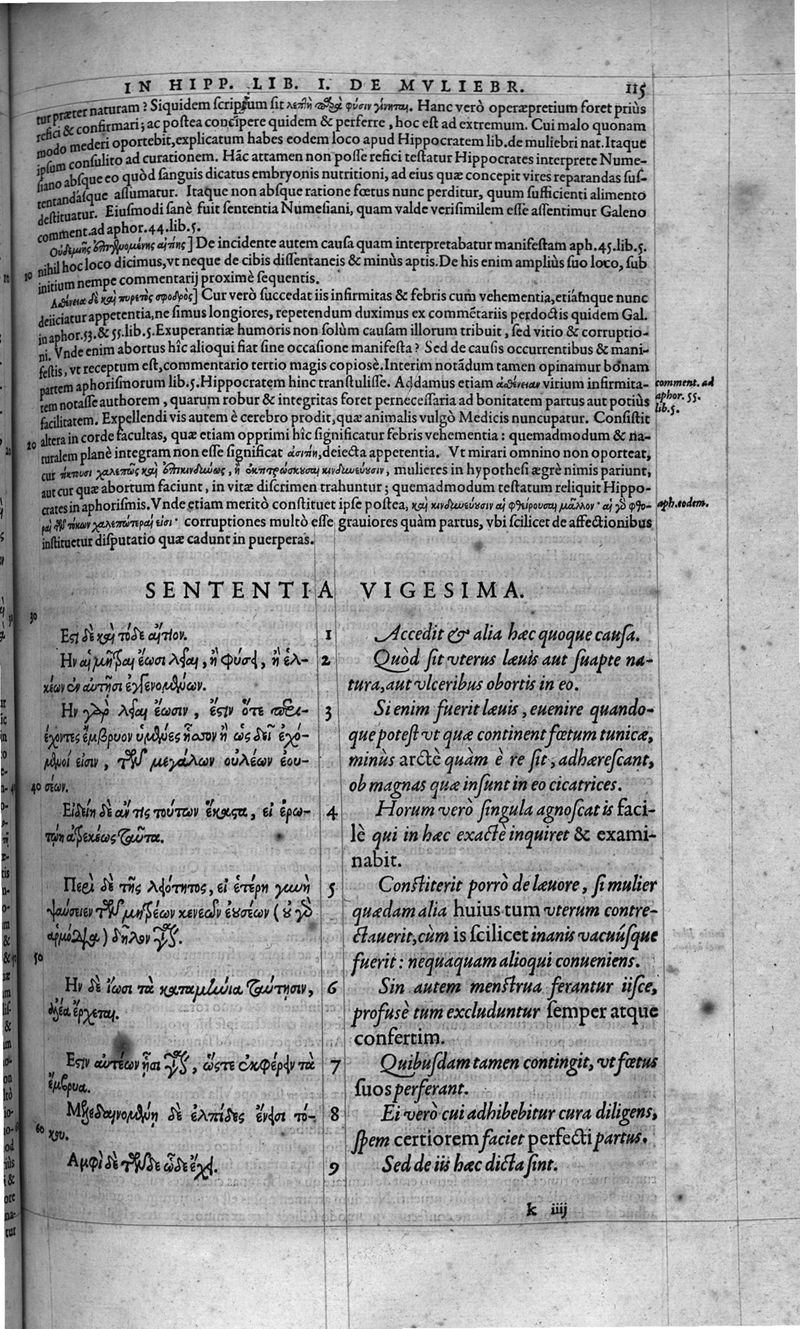 IN HIPP. LIB. I. DE MVLIEBR. 115
tur præter naturam? Siquidem scriptum sit λεπτὴ παρὰ φύσιν γίνηται. Hanc verò operæpretium foret priùs
refici & confirmari; ac postea concipere quidem & perferre, hoc est ad extremum. Cui malo quonam
modo mederi oportebit, explicatum habes eodem loco apud Hippocratem lib. de muliebri nat. Itaque
ipsum consulito ad curationem. Hâc attamen non posse refici testatur Hippocrates interprete Nume-
siano absque eo quòd sanguis dicatus embryonis nutritioni, ad eius quæ concepit vires reparandas sus-
tentandásque assumatur. Itaque non absque ratione fœtus nunc perditur, quum sufficienti alimento
destituatur. Eiusmodi sanè fuit sententia Numesiani, quam valde verisimilem esse assentimur Galeno
comment. ad aphor. 44. lib. 5.
] De incidente autem causa quam interpretabatur manifestam aph. 45. lib. 5.
10 nihil hoc loco dicimus, vt neque de cibis dissentaneis & minùs aptis. De his enim ampliùs suo loco, sub
initium nempe commentarij proximè sequentis.
Ἀσθένεια δὲ καὶ πυρετὸς σφοδρὸς] Cur verò succedat iis infirmitas & febris cum vehementia, etiámque nunc
deiiciatur appetentia, ne simus longiores, repetendum duximus ex commētariis perdoctis quidem Gal.
in aphor. 53. & 55. lib. 5. Exuperantiæ humoris non solùm causam illorum tribuit, sed vitio & corruptio-
ni. Vnde enim abortus hîc alioqui fiat sine occasione manifesta? Sed de causis occurrentibus & mani-
festis, vt receptum est, commentario tertio magis copiosè. Interim notādum tamen opinamur bonam
partem aphorismorum lib. 5. Hippocratem hinc transtulisse. Addamus etiam ἀσθένειαν virium infirmita-
tem notasse authorem, quarum robur & integritas foret pernecessaria ad bonitatem partus aut potiùs
facilitatem. Expellendi vis autem è cerebro prodit, quæ animalis vulgò Medicis nuncupatur. Consistit
20 altera in corde facultas, quæ etiam opprimi hîc significatur febris vehementia: quemadmodum & na-
turalem planè integram non esse significat ἀσιτίη, deiecta appetentia. Vt mirari omnino non oporteat,
cur τίκτουσι χαλεπῶς καὶ ἐπικινδύνως, ἢ ἐκτιτρώσκουσαι κινδυνεύουσιν, mulieres in hypothesi ægrè nimis pariunt,
aut cur quæ abortum faciunt, in vitæ discrimen trahuntur; quemadmodum testatum reliquit Hippo-
crates in aphorismis. Vnde etiam meritò constituet ipse postea, καὶ κινδυνεύουσιν αἱ φθείρουσαι μᾶλλον· αἱ γὰρ φθο-
ραὶ τῶν τόκων χαλεπώτεραί εἰσι· corruptiones multò esse grauiores quàm partus, vbi scilicet de affectionibus
instituetur disputatio quæ cadunt in puerperas.
comment. ad
aphor. 55.
lib. 5.
aph. eodem.
SENTENTIA VIGESIMA.
30
Εστι δὲ καὶ τόδε αἴτιον.
Ην αἱ μῆτραι ἔωσι λεῖαι, ἢ φύσει, ἢ ἑλ-
κέων ἐν αὐτῇσι ἐγγενομένων.
Ην γὰρ λεῖαι ἔωσιν, ἔστιν ὅτε περιέ-
χοντες ἔμβρυον ὑμένες ἧσσον ἢ ὡς δεῖ ἐχό-
μενοί εἰσιν, τῶν μεγάλων οὐλέων ἐου-
40 σέων.
Εἰδείη δὲ ἄν τις τούτων ἕκαστα, εἰ ἐρω-
τῴη ἀτρεκέως ταῦτα.
Περὶ δὲ τῆς λειότητος, εἰ ἑτέρη γυνὴ
ψαύσειεν τῶν μητρέων κενεῶν ἐουσέων (οὐ γὰρ
ἁρμόζεται) δῆλον γίνεται.
50
Ην δὲ ἴωσι τὰ καταμήνια ταύτησιν,
ἁλέα ἔρχεται.
Εστιν αὐτέων ᾗσι γίνεται, ὥστε ἐκφέρειν τὰ
ἔμβρυα.
Μελεδαινομένῃ δὲ ἐλπίδες ἔνεισι τό-
60 κου.
Αμφὶ δὲ τῶνδε ὧδε ἔχει.
1 Accedit & alia hæc quoque causa.
2 Quòd sit vterus læuis aut suapte na-
tura, aut vlceribus obortis in eo.
3 Si enim fuerit læuis, euenire quando-
que potest vt quæ continent fœtum tunicæ,
minùs arctè quàm è re sit, adhærescant,
ob magnas quæ insunt in eo cicatrices.
4 Horum verò singula agnoscat is faci-
lè qui in hæc exactè inquiret & exami-
nabit.
5 Constiterit porrò de læuore, si mulier
quædam alia huius tum vterum contre-
ctauerit, cùm is scilicet inanis vacuúsque
fuerit: nequaquam alioqui conueniens.
6 Sin autem menstrua ferantur iisce,
profusè tum excluduntur semper atque
confertim.
7 Quibusdam tamen contingit, vt fœtus
suos perferant.
8 Ei verò cui adhibebitur cura diligens,
spem certiorem faciet perfecti partus.
9 Sed de iis hæc dicta sint.
k iiij